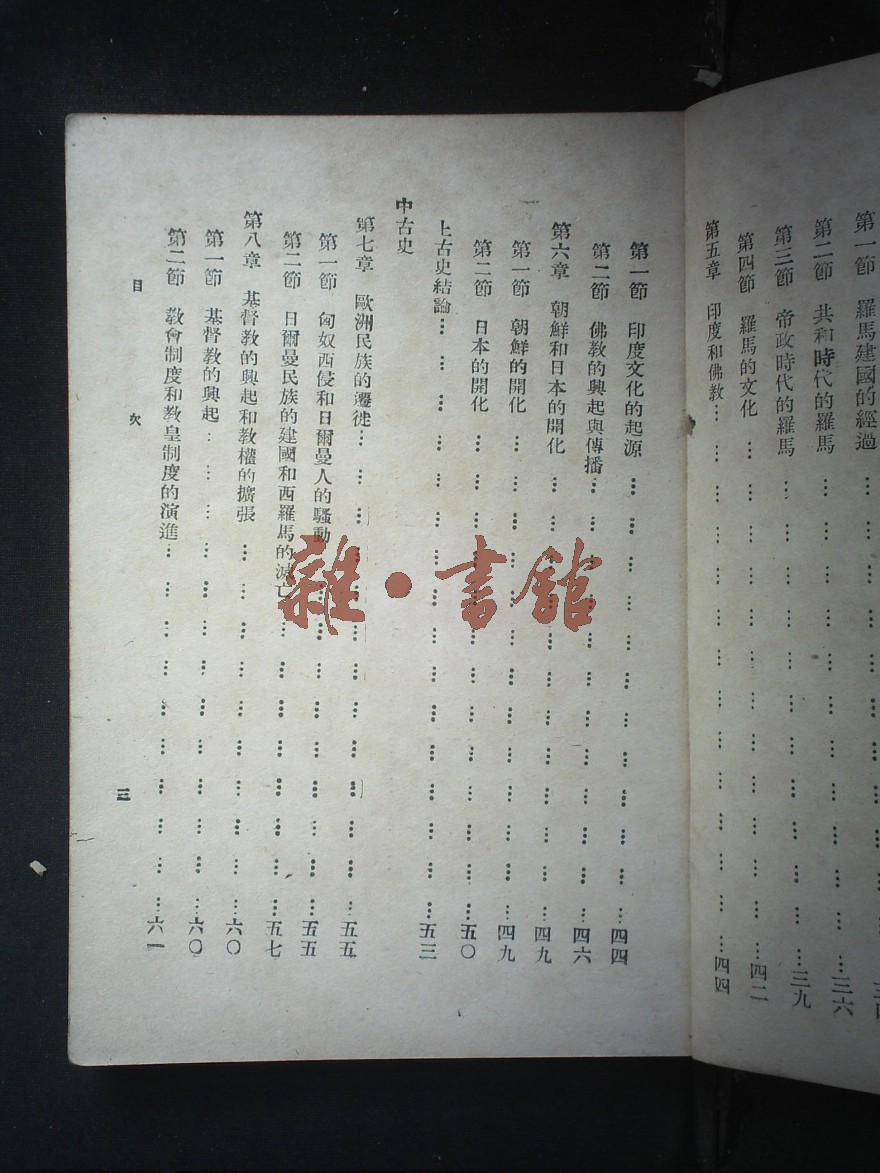 第一節　羅馬建國的經過
第二節　共和時代的羅馬…三六
第三節　帝政時代的羅馬…三九
第四節　羅馬的文化…四二
第五章　印度和佛教…四四
第一節　印度文化的起源…四四
第二節　佛教的興起與傳播…四六
第六章　朝鮮和日本的開化…四九
第一節　朝鮮的開化…四九
第二節　日本的開化…五〇
上古史結論…五三
中古史
第七章　歐洲民族的遷徙…五五
第一節　匈奴西侵和日爾曼人的騷動…五五
第二節　日爾曼民族的建國和西羅馬的滅亡…五七
第八章　基督教的興起和教權的擴張…六〇
第一節　基督教的興起…六〇
第二節　教會制度和教皇制度的演進…六一
目　次　三
雜·書館